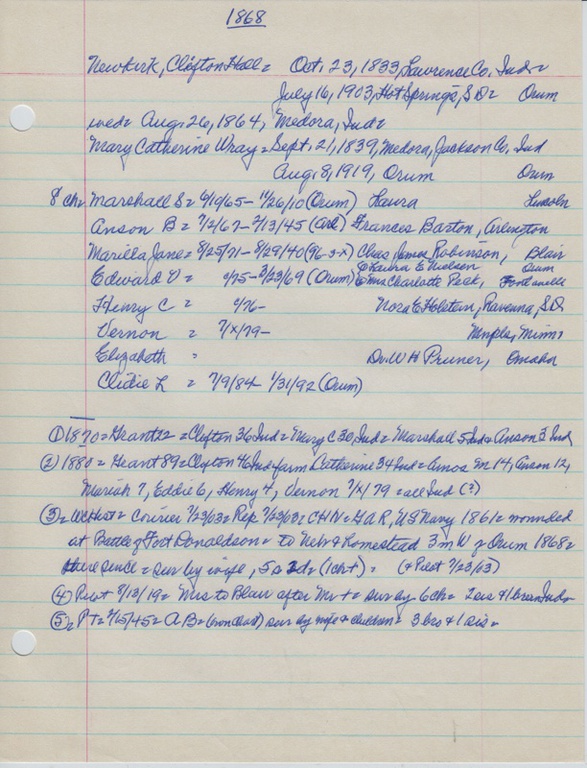 1868
Newkirk, Clifton Hall = Oct. 23, 1833, Lawrence Co, Ind =
July 16, 1903, Hot Springs, SD = Orum
wed = Aug. 26, 1864, Medora, Ind =
Mary Catherine Wray = Sept. 21, 1839, Medora, Jackson Co. Ind
Aug. 8, 1919, Orum Orum
8 ch = Marshall S = 6/9/65 - 11/26/10 (Orum) Laura Lincoln
Anson B = 7/2/67 - 2/13/45 (Arl) Frances Barton, Arlington
Mariella Jane = 8/25/71 - 8/29/40 (96-3-X) Chas James Robinson, Blair
① Laura E Nielsen Orum
Edward V = 0/75 - 3/23/69 (Orum) ② Emma Charlotte Peck, Fontanelle
Henry C = 0/76 - Nora E Holstein, Ravenna, SD
Vernon = 7/X/79 - Mnpls, Minn
Elizabeth = Dr. W H Pruner, Omaha
Clidie L = 7/9/84 - 1/31/92 (Orum)
① 1870 = Grant 22 = Clifton 36 Ind = Mary C 30, Ind = Marshall 5 Ind = Anson 3 Ind
② 1880 = Grant 89 = Clifton 46 Ind farm Catherine 34 Ind = Amos M 14, Anson 12,
Mariah 7, Eddie 6, Henry 4, Vernon 7/X/79 = all Ind (?)
③ = = Courier 7/23/03 = Rep 7/23/03 = CHN = GAR, US Navy 1861 = wounded
at Battle of Fort Donaldson = to Nebr & Homestead 3 m W of Orum 1868 =
there since = sur by wife, 5 s 2 d = (1 ch +) = (& Pilot 7/23/03)
④ Pilot 8/13/19 = Mrs to Blair after Mr + = sur by 6 ch = 2 sis & 1 bro in Ind =
⑤ = PT = 2/15/45 = AB = sur by wife & children = 3 bro & 1 sis =